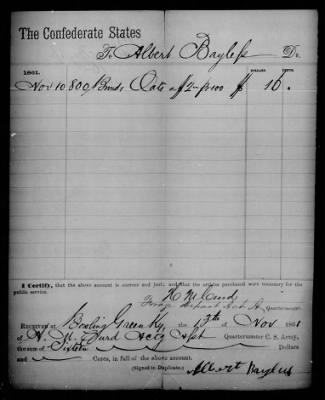 The Confederate States
To Albert Bayless Dr.
DOLLARS CENTS
1861.
Nov 10 800 Bunds Oats @ 2- p 100 $ 16.
I Certify, that the above account is correct and just; and that the articles purchased were necessary for the
public service.
Forage Quartermaster.
Received at Bowling Green Ky, the 13th of Nov 1861
of Actg Asst Quartermaster C. S. Army,
the sum of Sixteen Dollars
and Cents, in full of the above account.
(Signed in Duplicate.) Albert Bayless